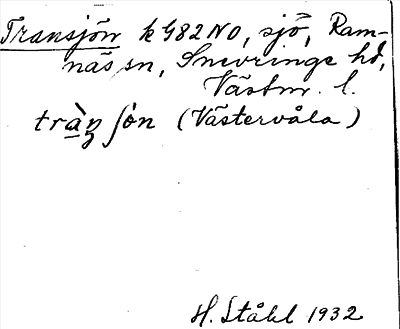 Transjön k G82 NO, sjö, Ram-
näs sn, Snevringe hd,
Västm. l.
(Västervåla)
H. Ståhl 1932